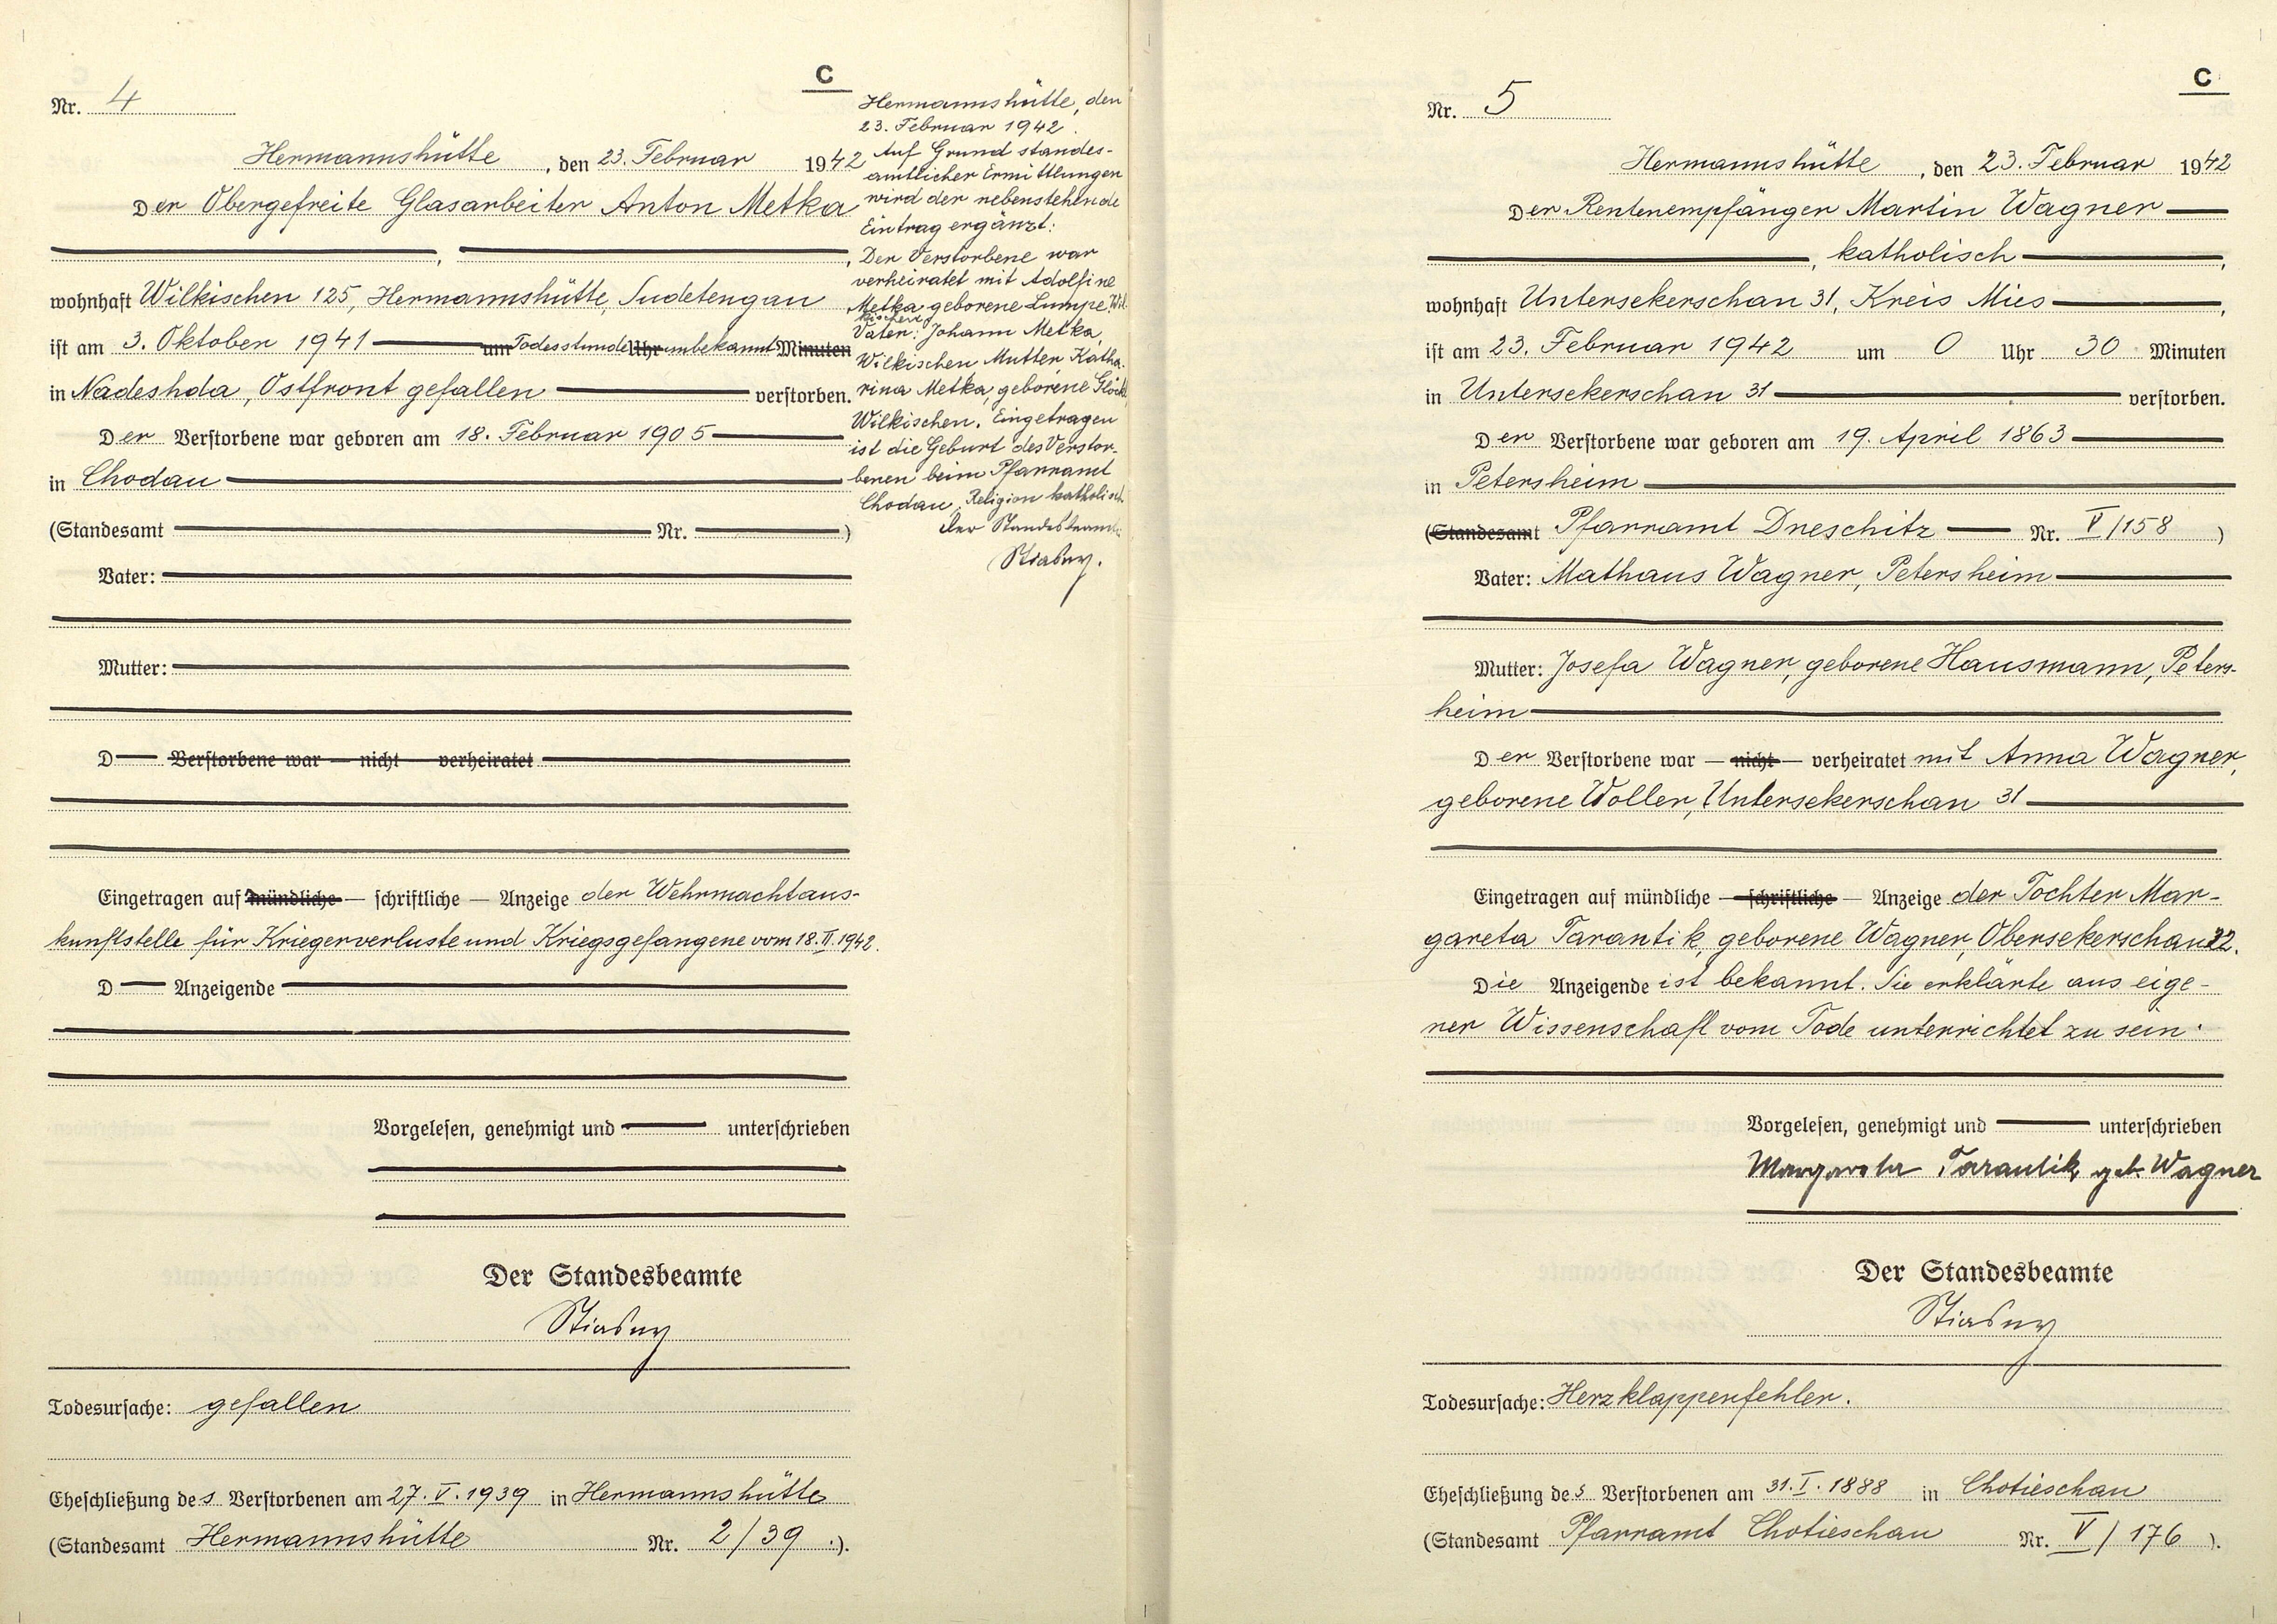 C
Nr. 4
Hermannshütte, den 23. Februar 1942
Der Obergefreite Glasarbeiter Anton Metka
wohnhaft Wilkischen 125, Hermannshütte, Sudetengau
ist am 3. Oktober 1941 um Todesstunde Uhr unbekannt Minuten
in Nadeshda, Ostfront gefallen verstorben.
Der Verstorbene war geboren am 18. Februar 1905
in Chodau
(Standesamt Nr. )
Vater:
Mutter:
D Verstorbene war — nicht — verheiratet
Eingetragen auf mündliche — schriftliche — Anzeige der Wehrmachtaus-
kunftstelle für Kriegerverluste und Kriegsgefangene vom 18. II. 1942.
D Anzeigende
Vorgelesen, genehmigt und unterschrieben
Der Standesbeamte
Stiasny
Todesursache: gefallen
Eheschließung des Verstorbenen am 27. V. 1939 in Hermannshütte
(Standesamt Hermannshütte Nr. 2/39 .).
Hermannshütte, den
23. Februar 1942.
Auf Grund standes-
amtlicher Ermittlungen
wird der nebenstehende
Eintrag ergänzt:
Der Verstorbene war
verheiratet mit Adolfine
Metka geborene Lumpe, Wil-
kischen
Vater: Johann Metka,
Wilkischen Mutter Katha-
rina Metka, geborene
Wilkischen. Eingetragen
ist die Geburt des Verstor-
benen beim Pfarramt
Chodau, Religion katholisch
Der Standesbeamte
Stiasny.
C
Nr. 5
Hermannshütte, den 23. Februar 1942
Der Rentenempfänger Martin Wagner
, katholisch ,
wohnhaft Untersekerschan 31, Kreis Mies ,
ist am 23. Februar 1942 um 0 Uhr 30 Minuten
in Untersekerschan 31 verstorben.
Der Verstorbene war geboren am 19. April 1863
in Petersheim
(Standesamt Pfarramt Dneschitz Nr. V/158 )
Vater: Mathaus Wagner, Petersheim
Mutter: Josefa Wagner, geborene Hausmann, Peters-
heim
Der Verstorbene war — nicht — verheiratet mit Anna Wagner,
geborene Woller, Untersekerschan 31
Eingetragen auf mündliche — schriftliche — Anzeige der Tochter Mar-
gareta Tarantik, geborene Wagner, Obersekerschan 32.
Die Anzeigende ist bekannt. Sie erklärte aus eige-
ner Wissenschaft vom Tode unterrichtet zu sein.
Vorgelesen, genehmigt und unterschrieben
Margareta Tarantik geb. Wagner
Der Standesbeamte
Stiasny
Todesursache: Herzklappenfehler.
Eheschließung des Verstorbenen am 31. I. 1888 in Chotieschau
(Standesamt Pfarramt Chotieschau Nr. V/176 ).